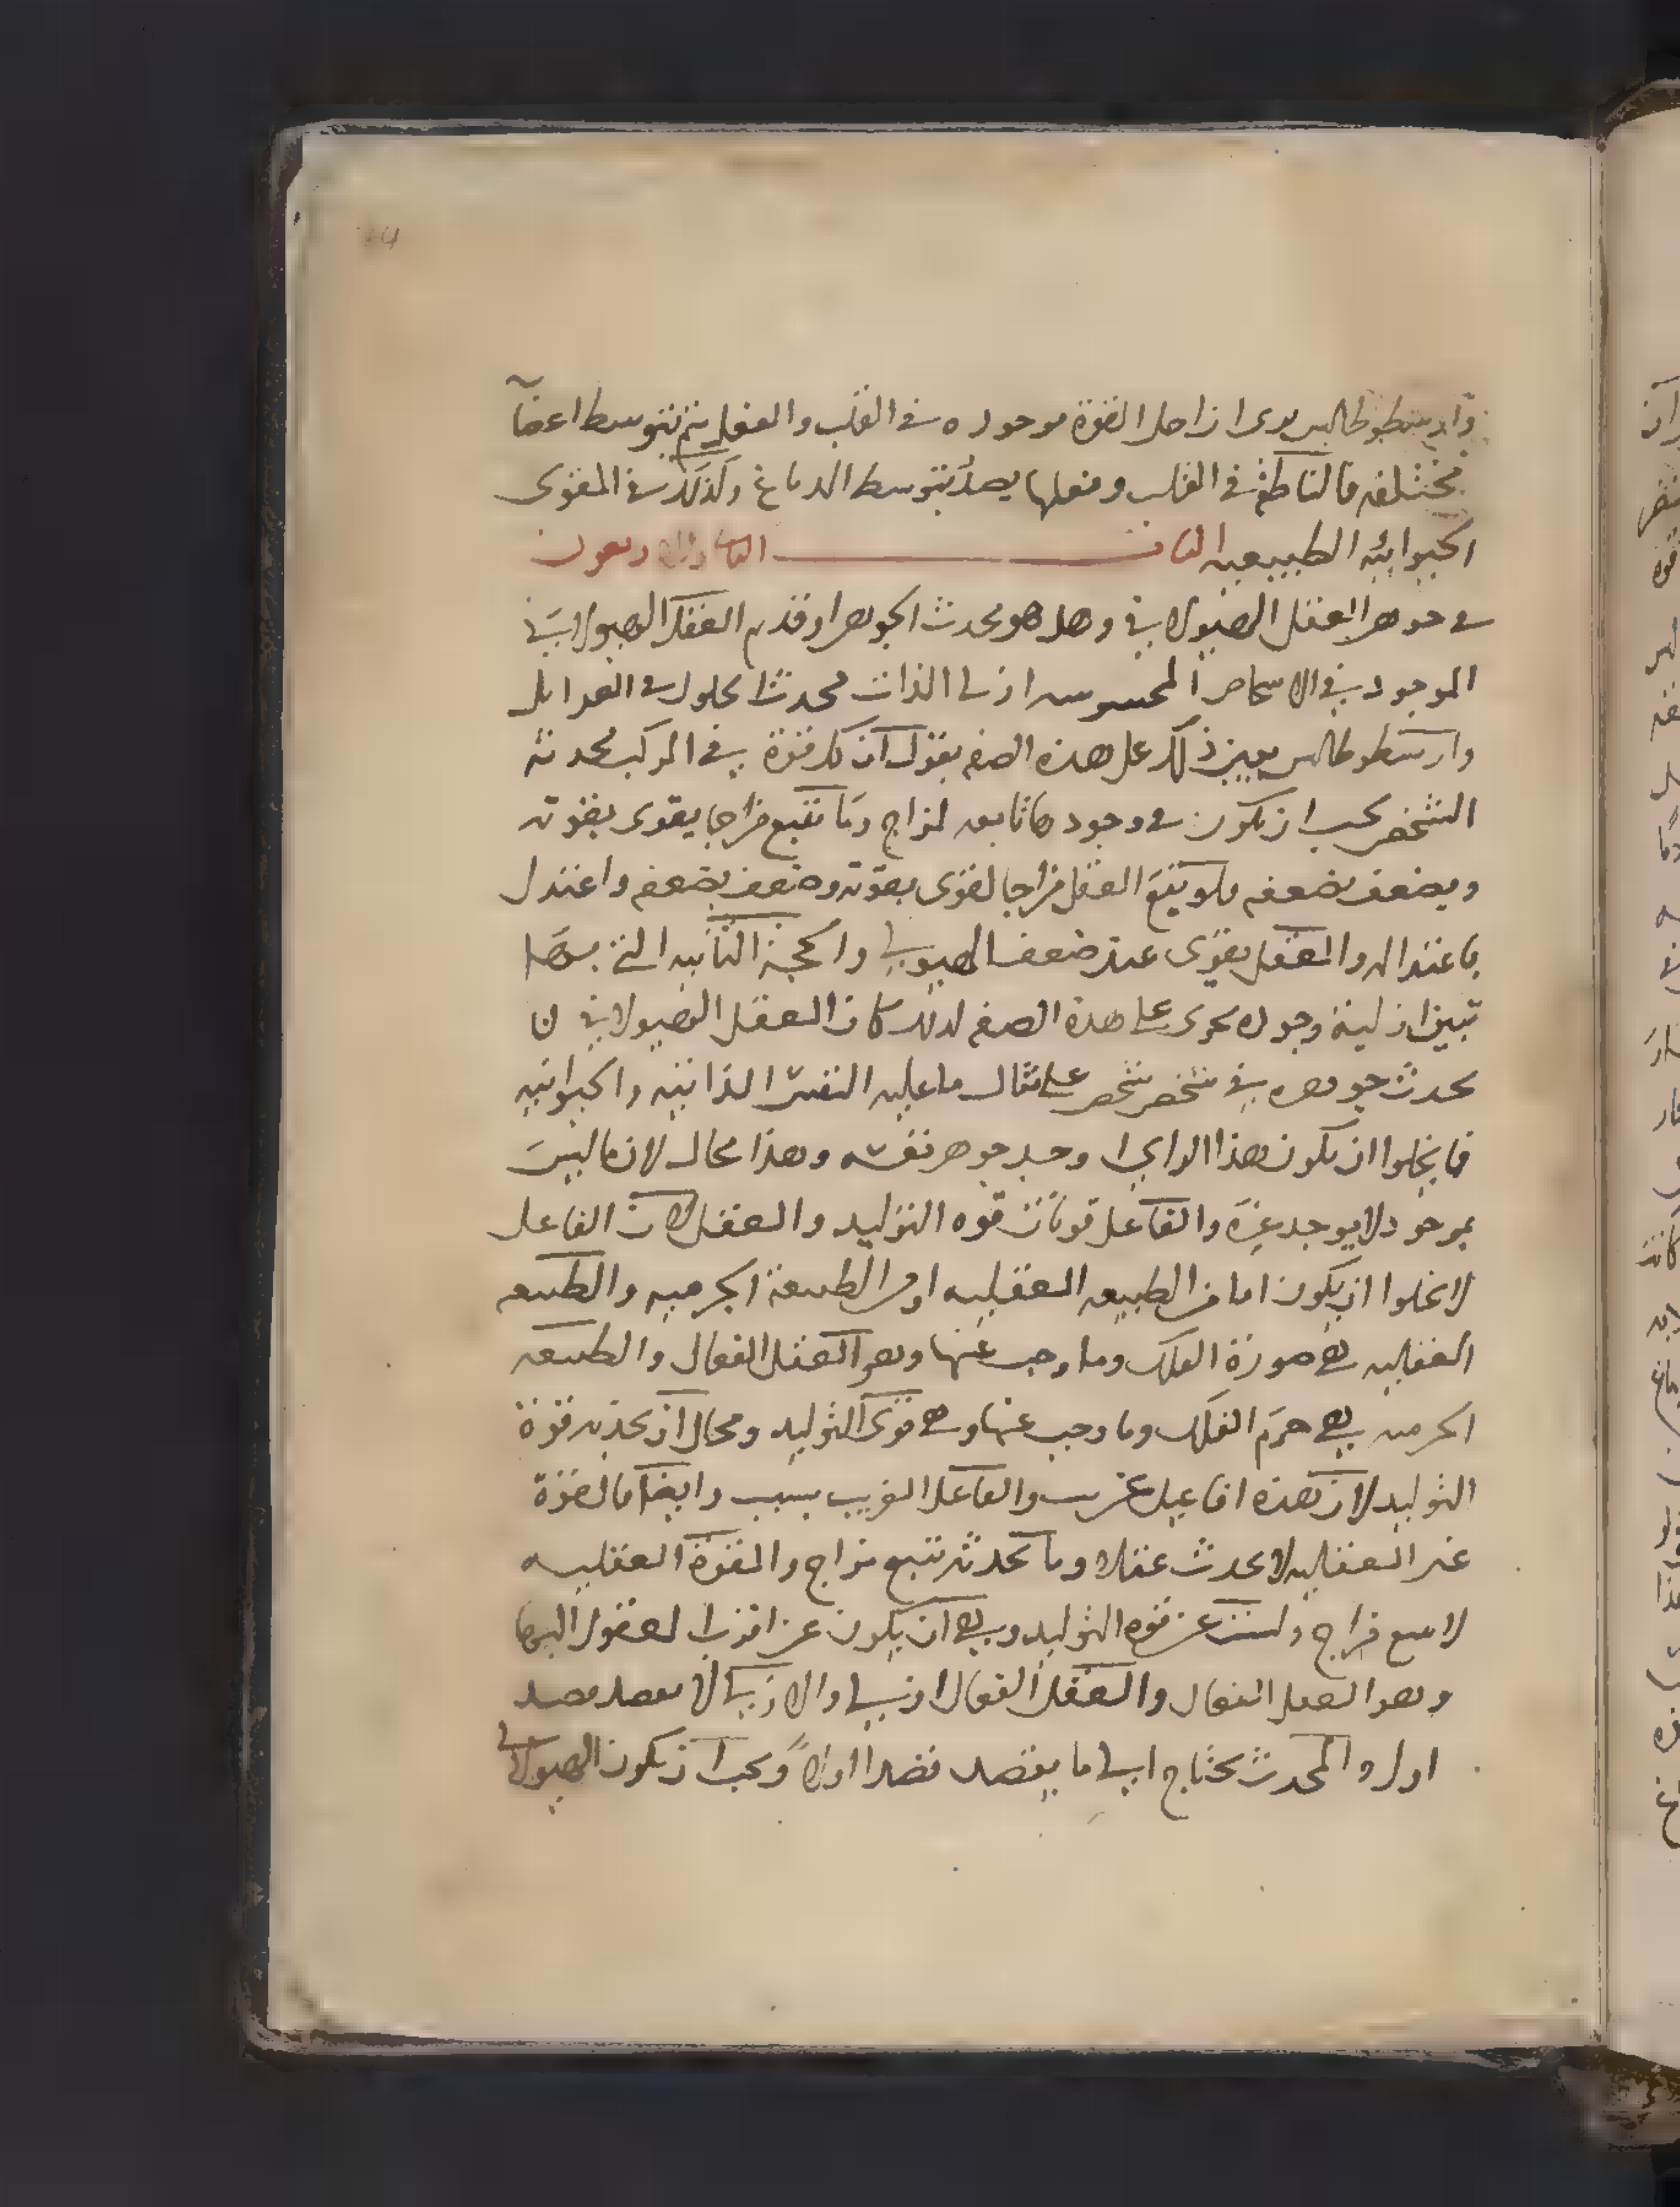 وارسطوطالس يرى ان اصل القوة موجوده في القلب والفعل يتم بتوسط اعضآ
مختلفه فالناطقة في القلب وفعلها يصدر بتوسط الدماغ وكذلك في القوى
الحيوانيه الطبيعيه الباب الثاني والاربعون
في جوهر العقل الهيولاني وهل هو محدث الجوهر او قديم العقل الهيولاني
الموجود في الاشخاص المحسوسه ازلي الذات محدث الحلول في القوابل
وارسطوطالس يبين ذلك على هذه الصفه يقول ان كل قوة في المركب محدثه
الشخص يجب ان تكون في وجودها تابعه لمزاج وما تتبع مزاجا يقوى بقوته
ويضعف بضعفه فلو يتبع العقل مزاجا لقوى بقوته وضعف بضعفه واعتدل
باعتداله والعقل يقوى عند ضعف الهيولى والحجة الثانيه التي بها
تبين ازلية وجوده تجرى على هذه الصفه لو كان العقل الهيولاني
يحدث جوهره في شخص شخص على مثال ما عليه النفس النباتيه والحيوانيه
فما يخلوا ان يكون هذا اوجد جوهر نفسه وهذا محال لان ما ليس
بموجود لا يوجد غيره والفاعل قوتان قوه التوليد والعقل لان الفاعل
لا يخلوا ان يكون اما من الطبيعه العقليه او من الطبيعة الجرميه والطبيعه
العقليه هي صورة الفلك وما وجب عنها وهو العقل الفعال والطبيعه
الجرميه هي جرم الفلك وما وجب عنها وهي قوى التوليد ومحال ان تحدثه قوة
التوليد لان هذه افاعيل والفاعل القريب بسبب وايضا فالقوة
غير العقليه لا تحدث عقلا وما تحدثه تتبع مزاج والقوة العقليه
لا تتبع مزاج وليست عن قوه التوليد وبقي ان يكون عن اقرب العقول اليها
وهو العقل الفعال والعقل الفعال ازلي والازلي لا يقصد قصد
اول والمحدث يحتاج الى ما يقصد قصدا اولا ويجب ان تكون الهيولى